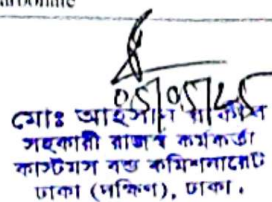 05/05/25
মোঃ
সহকারী রাজস্ব কর্মকর্তা
কাস্টমস বন্ড কমিশনারেট
ঢাকা (দক্ষিণ), ঢাকা।